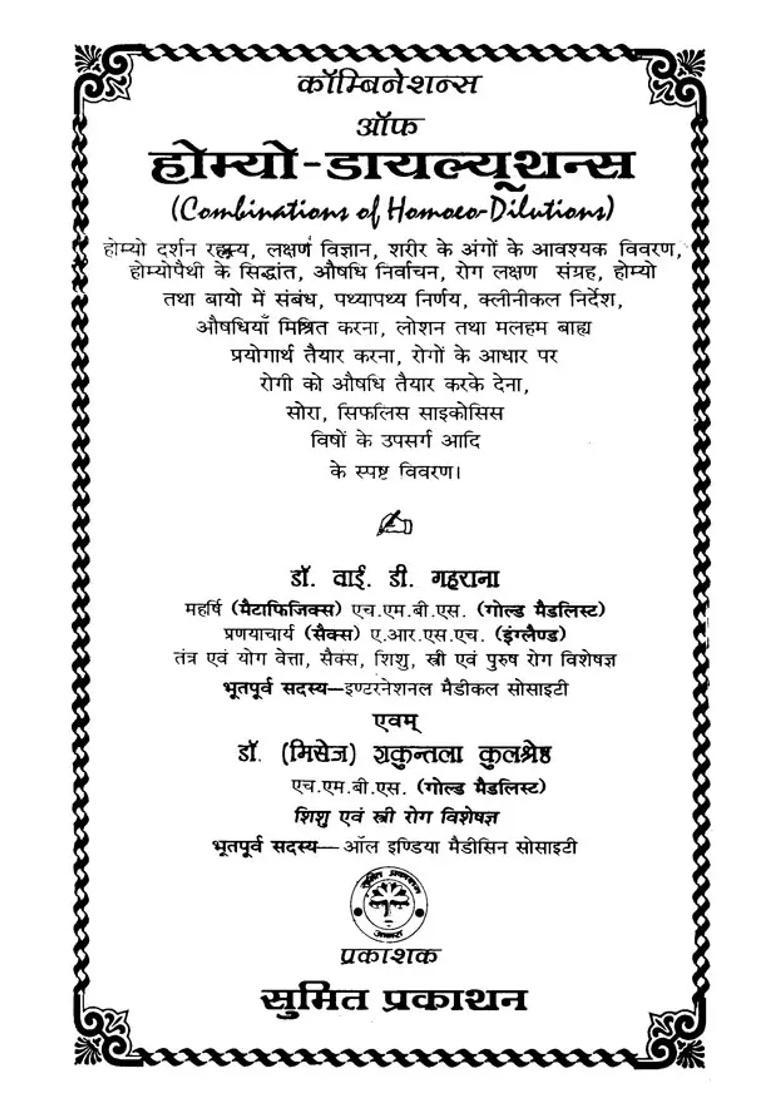 कॉम्बिनेशन्स
ऑफ
होम्यो-डायल्यूशन्स
(Combinations of Homoeo-Dilutions)
होम्यो दर्शन रहस्य, लक्षण विज्ञान, शरीर के अंगों के आवश्यक विवरण,
होम्योपैथी के सिद्धांत, औषधि निर्वाचन, रोग लक्षण संग्रह, होम्यो
तथा बायो में संबंध, पथ्यापथ्य निर्णय, क्लीनीकल निर्देश,
औषधियाँ मिश्रित करना, लोशन तथा मलहम बाह्य
प्रयोगार्थ तैयार करना, रोगों के आधार पर
रोगी को औषधि तैयार करके देना,
सोरा, सिफलिस साइकोसिस
विषों के उपसर्ग आदि
के स्पष्ट विवरण।
डॉ. वाई. डी. गहराना
महर्षि (मैटाफिजिक्स) एच.एम.बी.एस. (गोल्ड मैडलिस्ट)
प्रणयाचार्य (सैक्स) ए.आर.एस.एच. (इंग्लैण्ड)
तंत्र एवं योग वेत्ता, सैक्स, शिशु, स्त्री एवं पुरुष रोग विशेषज्ञ
भूतपूर्व सदस्य—इण्टरनेशनल मैडीकल सोसाइटी
एवम्
डॉ. (मिसेज) शकुन्तला कुलश्रेष्ठ
एच.एम.बी.एस. (गोल्ड मैडलिस्ट)
शिशु एवं स्त्री रोग विशेषज्ञ
भूतपूर्व सदस्य—ऑल इण्डिया मैडीसिन सोसाइटी
सुमित प्रकाशन
आगरा
प्रकाशक
सुमित प्रकाशन